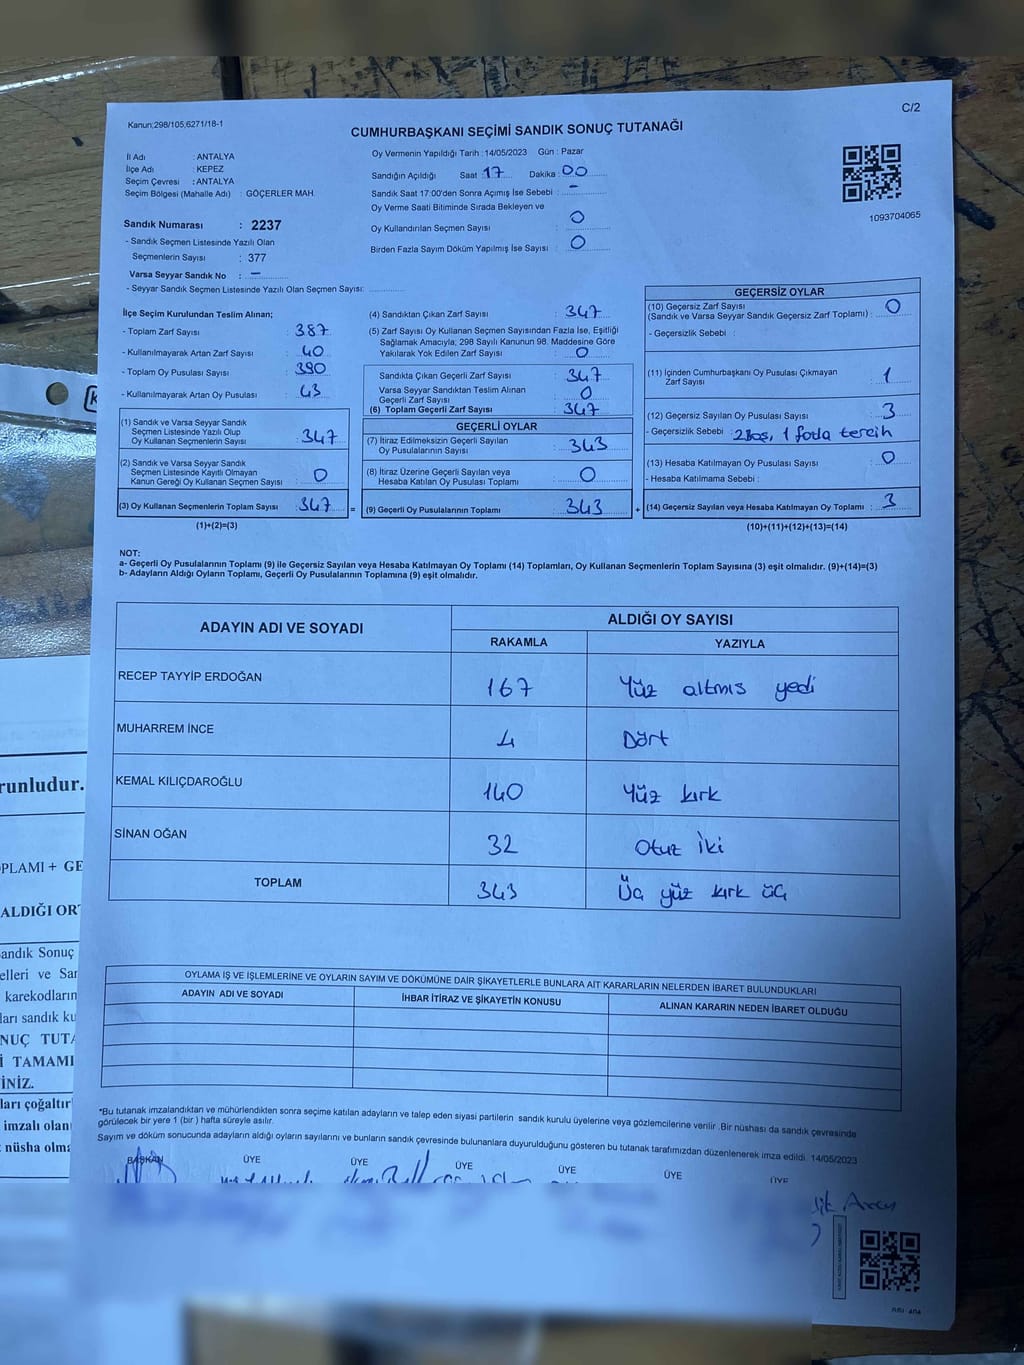 C/2
Kanun;298/105;6271/18-1
CUMHURBAŞKANI SEÇİMİ SANDIK SONUÇ TUTANAĞI
İl Adı : ANTALYA
İlçe Adı : KEPEZ
Seçim Çevresi : ANTALYA
Seçim Bölgesi (Mahalle Adı) : GÖÇERLER MAH.
Sandık Numarası : 2237
- Sandık Seçmen Listesinde Yazılı Olan
Seçmenlerin Sayısı : 377
Varsa Seyyar Sandık No : –
- Seyyar Sandık Seçmen Listesinde Yazılı Olan Seçmen Sayısı:
Oy Vermenin Yapıldığı Tarih : 14/05/2023 Gün : Pazar
Sandığın Açıldığı Saat 17 Dakika : 00
Sandık Saat 17:00'den Sonra Açımış İse Sebebi : –
Oy Verme Saati Bitiminde Sırada Bekleyen ve
Oy Kullandırılan Seçmen Sayısı : 0
Birden Fazla Sayım Döküm Yapılmış İse Sayısı : 0
1093704065
İlçe Seçim Kurulundan Teslim Alınan;
- Toplam Zarf Sayısı : 387
- Kullanılmayarak Artan Zarf Sayısı : 40
- Toplam Oy Pusulası Sayısı : 390
- Kullanılmayarak Artan Oy Pusulası : 43
(1) Sandık ve Varsa Seyyar Sandık
Seçmen Listesinde Yazılı Olup
Oy Kullanan Seçmenlerin Sayısı : 347
(2) Sandık ve Varsa Seyyar Sandık
Seçmen Listesinde Kayıtlı Olmayan
Kanun Gereği Oy Kullanan Seçmen Sayısı : 0
(3) Oy Kullanan Seçmenlerin Toplam Sayısı : 347 =
(1)+(2)=(3)
(4) Sandıktan Çıkan Zarf Sayısı : 347
(5) Zarf Sayısı Oy Kullanan Seçmen Sayısından Fazla İse, Eşitliği
Sağlamak Amacıyla; 298 Sayılı Kanunun 98. Maddesine Göre
Yakılarak Yok Edilen Zarf Sayısı : 0
Sandıkta Çıkan Geçerli Zarf Sayısı : 347
Varsa Seyyar Sandıktan Teslim Alınan
Geçerli Zarf Sayısı : 0
(6) Toplam Geçerli Zarf Sayısı : 347
GEÇERLİ OYLAR
(7) İtiraz Edilmeksizin Geçerli Sayılan
Oy Pusulalarının Sayısı : 343
(8) İtiraz Üzerine Geçerli Sayılan veya
Hesaba Katılan Oy Pusulası Toplamı : 0
(9) Geçerli Oy Pusulalarının Toplamı : 343 +
GEÇERSİZ OYLAR
(10) Geçersiz Zarf Sayısı
(Sandık ve Varsa Seyyar Sandık Geçersiz Zarf Toplamı) : 0
- Geçersizlik Sebebi :
(11) İçinden Cumhurbaşkanı Oy Pusulası Çıkmayan
Zarf Sayısı : 1
(12) Geçersiz Sayılan Oy Pusulası Sayısı : 3
- Geçersizlik Sebebi : 2 Boş, 1 foda tercih
(13) Hesaba Katılmayan Oy Pusulası Sayısı : 0
- Hesaba Katılmama Sebebi :
(14) Geçersiz Sayılan veya Hesaba Katılmayan Oy Toplamı : 3
(10)+(11)+(12)+(13)=(14)
NOT:
a- Geçerli Oy Pusulalarının Toplamı (9) ile Geçersiz Sayılan veya Hesaba Katılmayan Oy Toplamı (14) Toplamları, Oy Kullanan Seçmenlerin Toplam Sayısına (3) eşit olmalıdır. (9)+(14)=(3)
b- Adayların Aldığı Oyların Toplamı, Geçerli Oy Pusulalarının Toplamına (9) eşit olmalıdır.
ADAYIN ADI VE SOYADI ALDIĞI OY SAYISI
RAKAMLA YAZIYLA
RECEP TAYYİP ERDOĞAN 167 Yüz altmıs yedi
MUHARREM İNCE 4 Dört
KEMAL KILIÇDAROĞLU 140 Yüz kırk
SİNAN OĞAN 32 Otuz İki
TOPLAM 343 Üç yüz kırk üç
OYLAMA İŞ VE İŞLEMLERİNE VE OYLARIN SAYIM VE DÖKÜMÜNE DAİR ŞİKAYETLERLE BUNLARA AİT KARARLARIN NELERDEN İBARET BULUNDUKLARI
ADAYIN ADI VE SOYADI İHBAR İTİRAZ VE ŞİKAYETİN KONUSU ALINAN KARARIN NEDEN İBARET OLDUĞU
*Bu tutanak imzalandıktan ve mühürlendikten sonra seçime katılan adayların ve talep eden siyasi partilerin sandık kurulu üyelerine veya gözlemcilerine verilir .Bir nüshası da sandık çevresinde
görülecek bir yere 1 (bir ) hafta süreyle asılır.
Sayım ve döküm sonucunda adayların aldığı oyların sayılarını ve bunların sandık çevresinde bulunanlara duyurulduğunu gösteren bu tutanak tarafımızdan düzenlenerek imza edildi. 14/05/2023
BAŞKAN ÜYE ÜYE ÜYE ÜYE ÜYE ÜYE
runludur.
OPLAMI + GE
ALDIĞI OR
andık Sonuç
elleri ve Sar
karekodların
ları sandık ku
NUÇ TUTA
İ TAMAMI
İNİZ.
ları çoğaltır
imzalı olan
nüsha olma